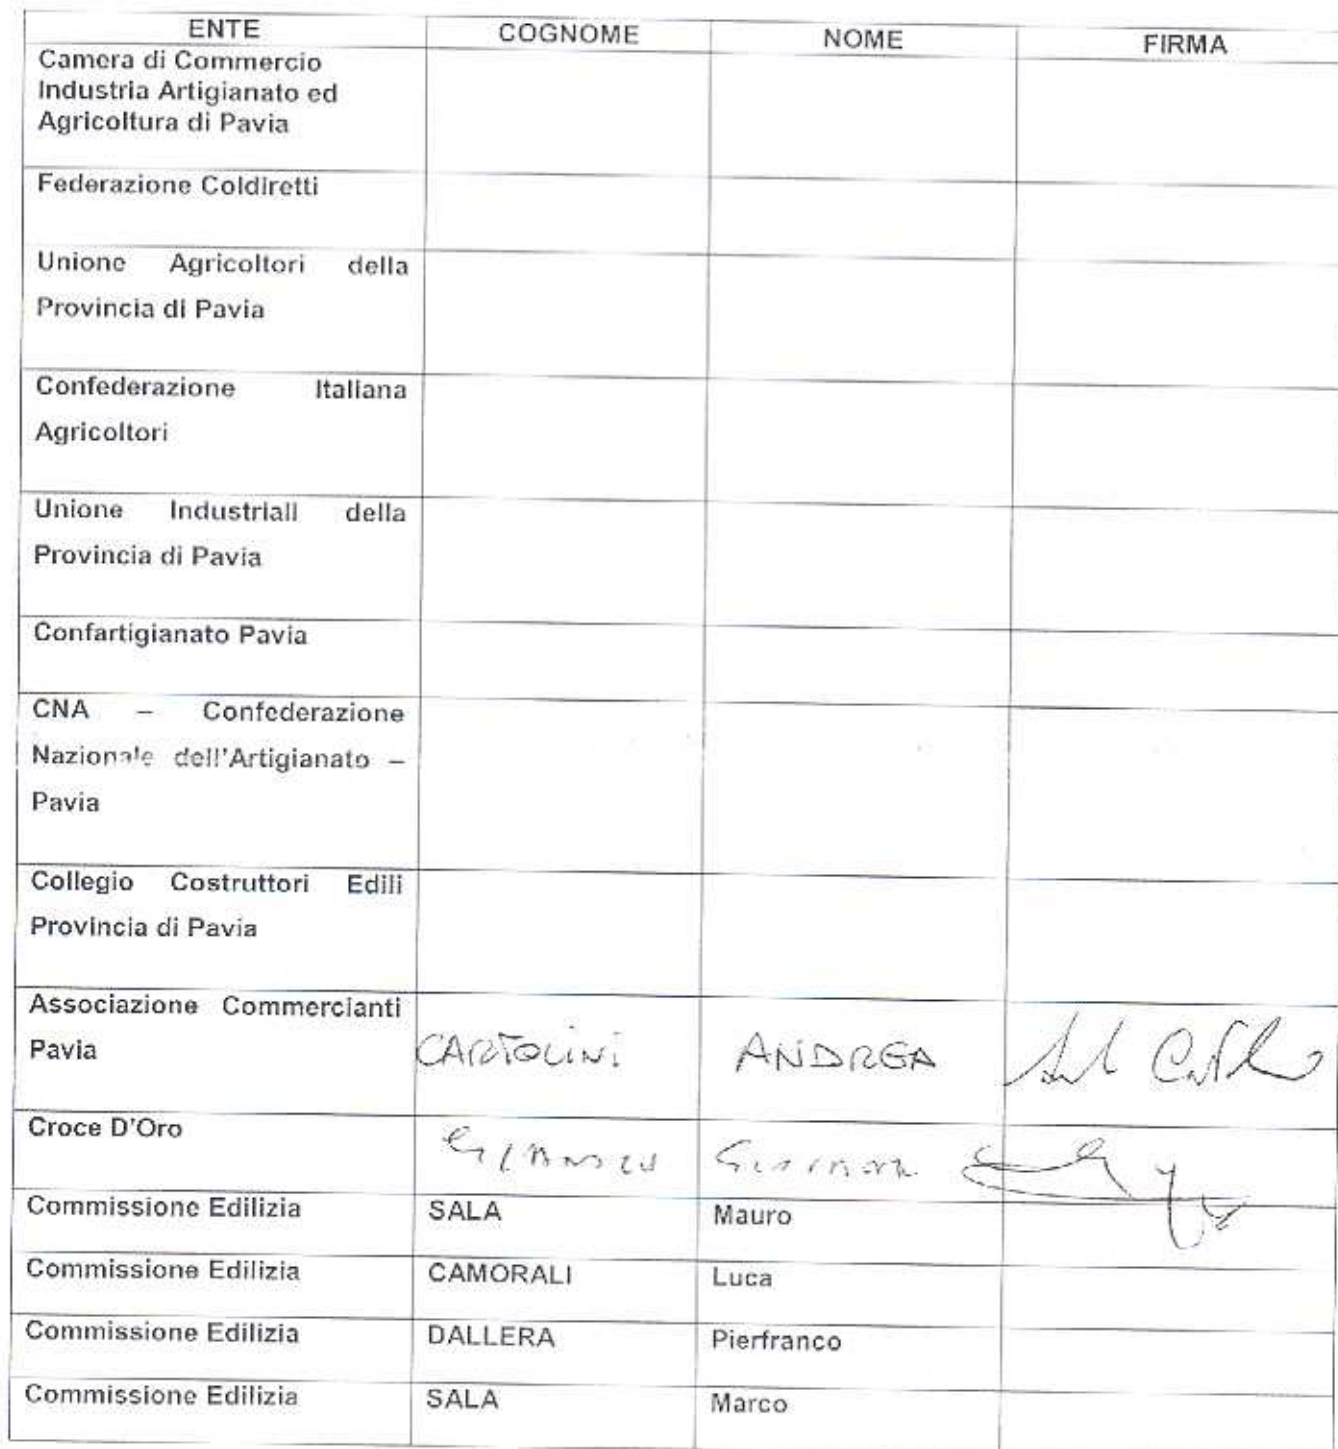 ENTE COGNOME NOME FIRMA
Camera di Commercio
Industria Artigianato ed
Agricoltura di Pavia
Federazione Coldiretti
Unione Agricoltori della
Provincia di Pavia
Confederazione Italiana
Agricoltori
Unione Industriali della
Provincia di Pavia
Confartigianato Pavia
CNA – Confederazione
Nazionale dell'Artigianato –
Pavia
Collegio Costruttori Edili
Provincia di Pavia
Associazione Commercianti
Pavia CARTOLINI ANDREA
Croce D'Oro
Commissione Edilizia SALA Mauro
Commissione Edilizia CAMORALI Luca
Commissione Edilizia DALLERA Pierfranco
Commissione Edilizia SALA Marco